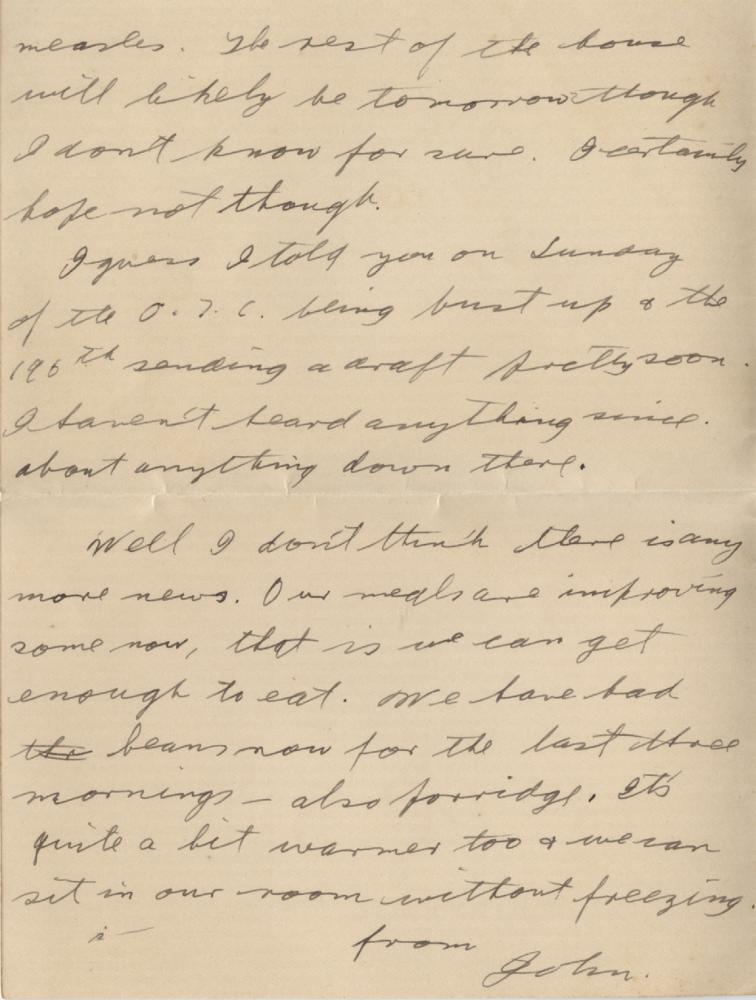 measles. The rest of the house
will likely be tomorrow though
I don't know for sure. I certainly
hope not though.
I guess I told you on Sunday
of the O.T.C. being bust up & the
196th sending a draft pretty soon.
I haven't heard anything since.
about anything down there.
Well I don't think there is any
more news. Our meals are improving
some now, that is we can get
enough to eat. We have had
the beans now for the last three
mornings – also porridge. It's
quite a bit warmer too & we can
sit in our room without freezing.
from
John.